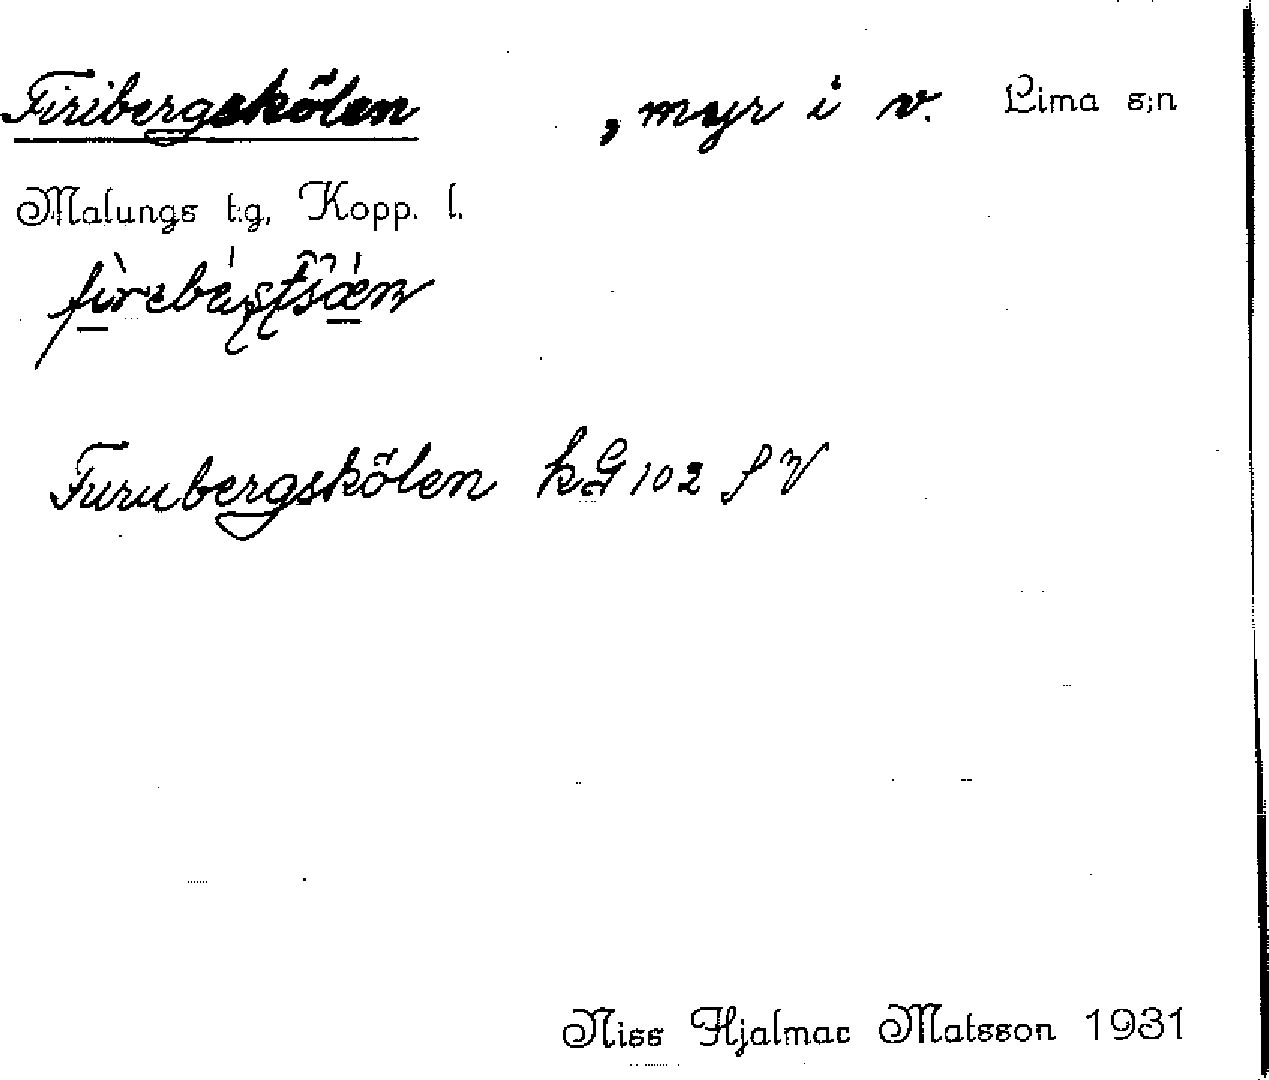 Firibergskölen , myr i v. Lima s:n
Malungs t:g, Kopp. l.
Furubergskölen kG 102 SV
Niss Hjalmar Matsson 1931